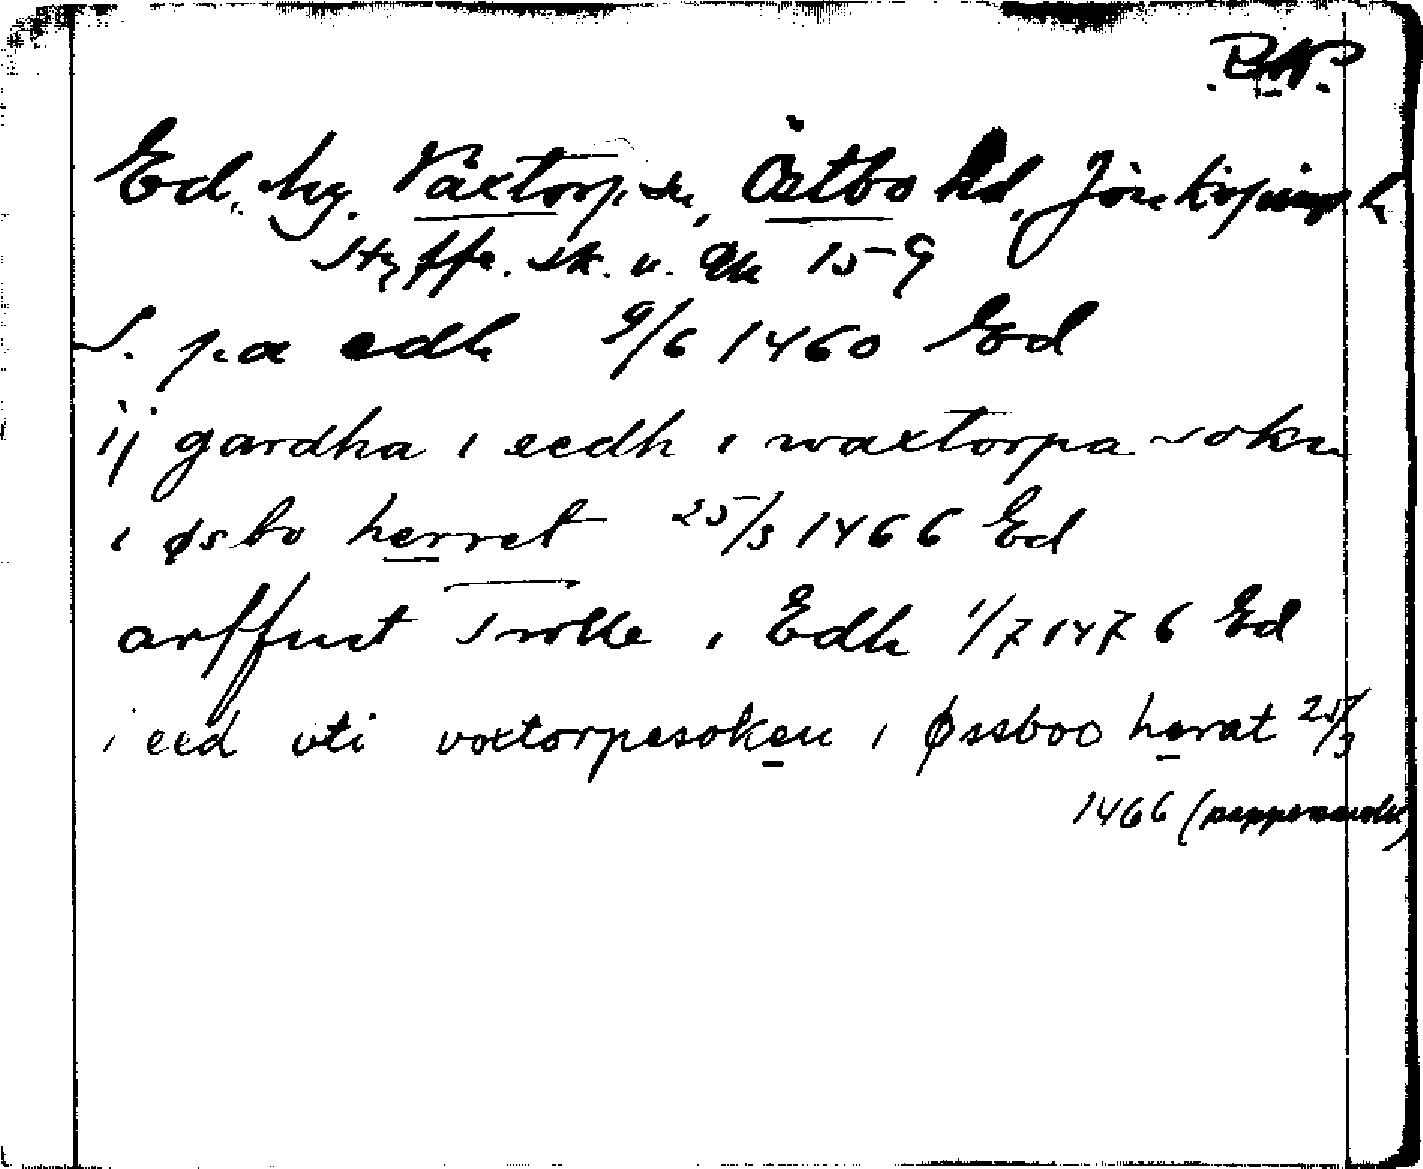 Ed, by, Växtorp, sn, Östbo hd, Jönköpings l
Styffe. Sk. u. Un 159
S. pa edh 9/6 1460 Ed
ij gardha i eedh i waxtorpa sokn
i øsbo herret 25/3 1466 Ed
arffuet Trolle i Edh 1/7 1476 Ed
i eed vti voxtorpesoken i Øssboo herat 25/3
1466 (pappersavskr)